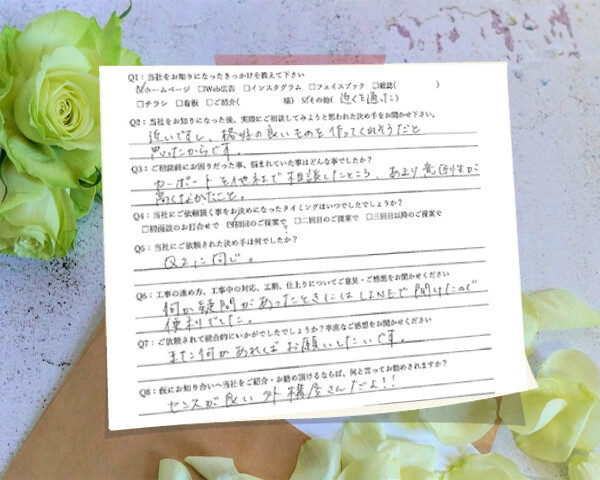 Q1：当社をお知りになったきっかけを教えて下さい
☑ホームページ □Web広告 □インスタグラム □フェイスブック □雑誌( )
□チラシ □看板 □ご紹介( 様) ☑その他( 近くを通った )
Q2：当社をお知りになった後、実際にご相談してみようと思われた決め手をお聞かせ下さい。
近いですし、格好の良いものを作ってくれそうだと
思ったからです。
Q3：ご相談前にお困りだった事、悩まれていた事はどんな事でしたか？
カーポートを他社で相談したところ、あまり意匠性が
高くなかたこと。
Q4：当社にご依頼頂く事をお決めになったタイミングはいつでしたでしょうか？
□初面談のお打合せで ☑初回のご提案で ? □二回目のご提案で □三回目以降のご提案で
Q5：当社にご依頼された決め手は何でしたか？
Q2に同じ。
Q6：工事の進め方、工事中の対応、工期、仕上りについてご意見・ご感想をお聞かせください
何か疑問があったときにはLINEで聞けたので
便利でした。
Q7：ご依頼されて総合的にいかがでしたでしょうか？率直なご感想をお聞かせください
また何かあればお願いしたいです。
Q8：仮にお知り合いへ当社をご紹介・お勧め頂けるならば、何と言ってお勧めされますか？
センスが良い外構屋さんだよ!!